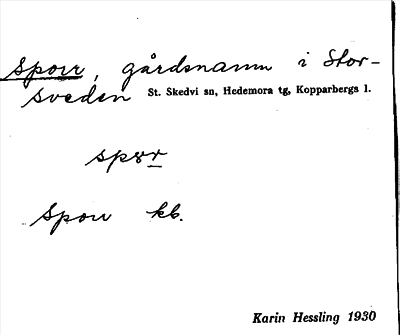 Sporr, gårdsnamn i Stor-
sveden St. Skedvi sn, Hedemora tg, Kopparbergs l.
spɷr
Sporr kb.
Karin Hessling 1930